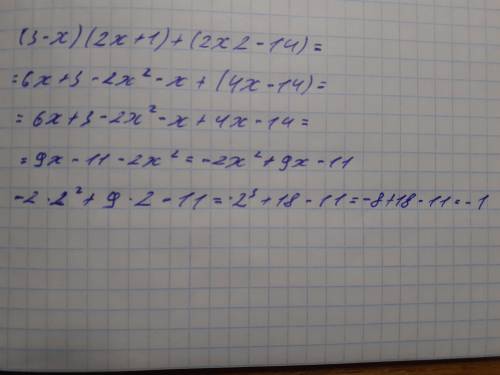 (3-x)(2x+1)+(2x2-14)=
=6x+3-2x²-x+(4x-14)=
=6x+3-2x²-x+4x-14=
=9x-11-2x²=-2x²+9x-11
-2·2²+9·2-11=-2³+18-11=-8+18-11=-1